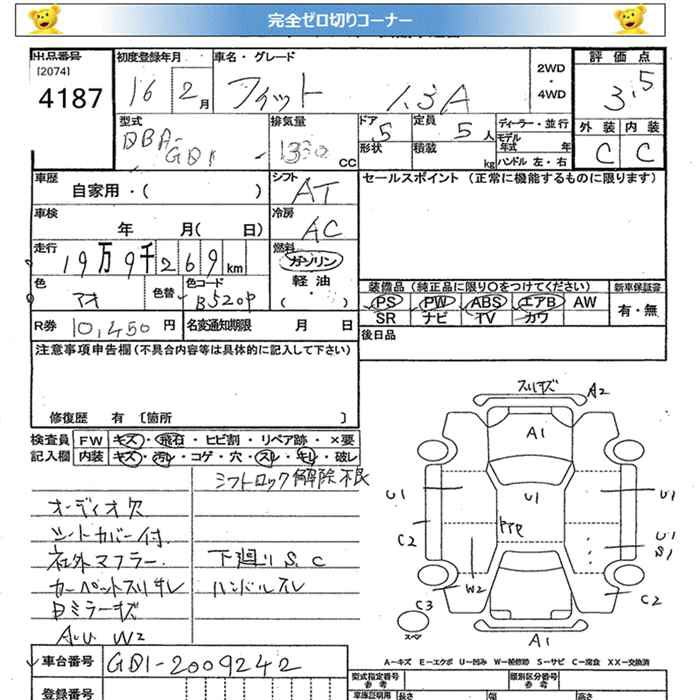 完全ゼロ切りコーナー
出品番号
[2074]
4187
初度登録年月
16 2月
車名・グレード
フィット 1.3A
2WD
・
4WD
評価点
3.5
外装 内装
C C
型式
DBA-
GD1
排気量
1330 cc
ドア
5
定員
5人
ディーラー・並行
モデル
年式 年
形状
積載 kg
ハンドル 左・右
車歴
自家用・( )
シフト
AT
セールスポイント (正常に機能するものに限ります)
車検
年 月( 日)
冷房
AC
走行
19万9千269km
燃料
ガソリン
軽油
( ・ )
色
アオ
色替
色コード
B520P
装備品 (純正品に限り○をつけてください)
新車保証書
PS PW ABS エアB AW
SR ナビ TV カワ
有・無
R券 10,450円
名変通知期限 月 日
後日品
注意事項申告欄 (不具合内容等は具体的に記入して下さい)
修復歴 有 [箇所 ]
検査員
記入欄
FW キズ・飛石・ヒビ割・リペア跡・×要
内装 キズ・汚レ・コゲ・穴・スレ・キレ・破レ
シフトロック解除不良
オーディオ欠
シートカバー付
社外マフラー
下廻りS.C
カーペットスリキレ
ハンドルスレ
Dミラーキズ
A.U W2
スリキズ A2
A1
U1
U1
U1
C2
U1
S1
W2
C3
C2
スペ
A1
A―キズ E―エクボ U―凹み W―補修跡 S―サビ C―腐食 XX―交換済
車台番号 GD1-2009242
登録番号
型式指定番号
参考
類別区分番号
参考
車庫証明用
長さ
幅
高さ